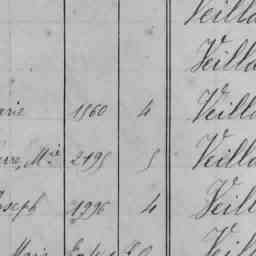 Veill
Veill
arie 1960 4 Veill
erre, Mie 2195 5 Veill
Joseph 1996 4 Veill
Marie Veill